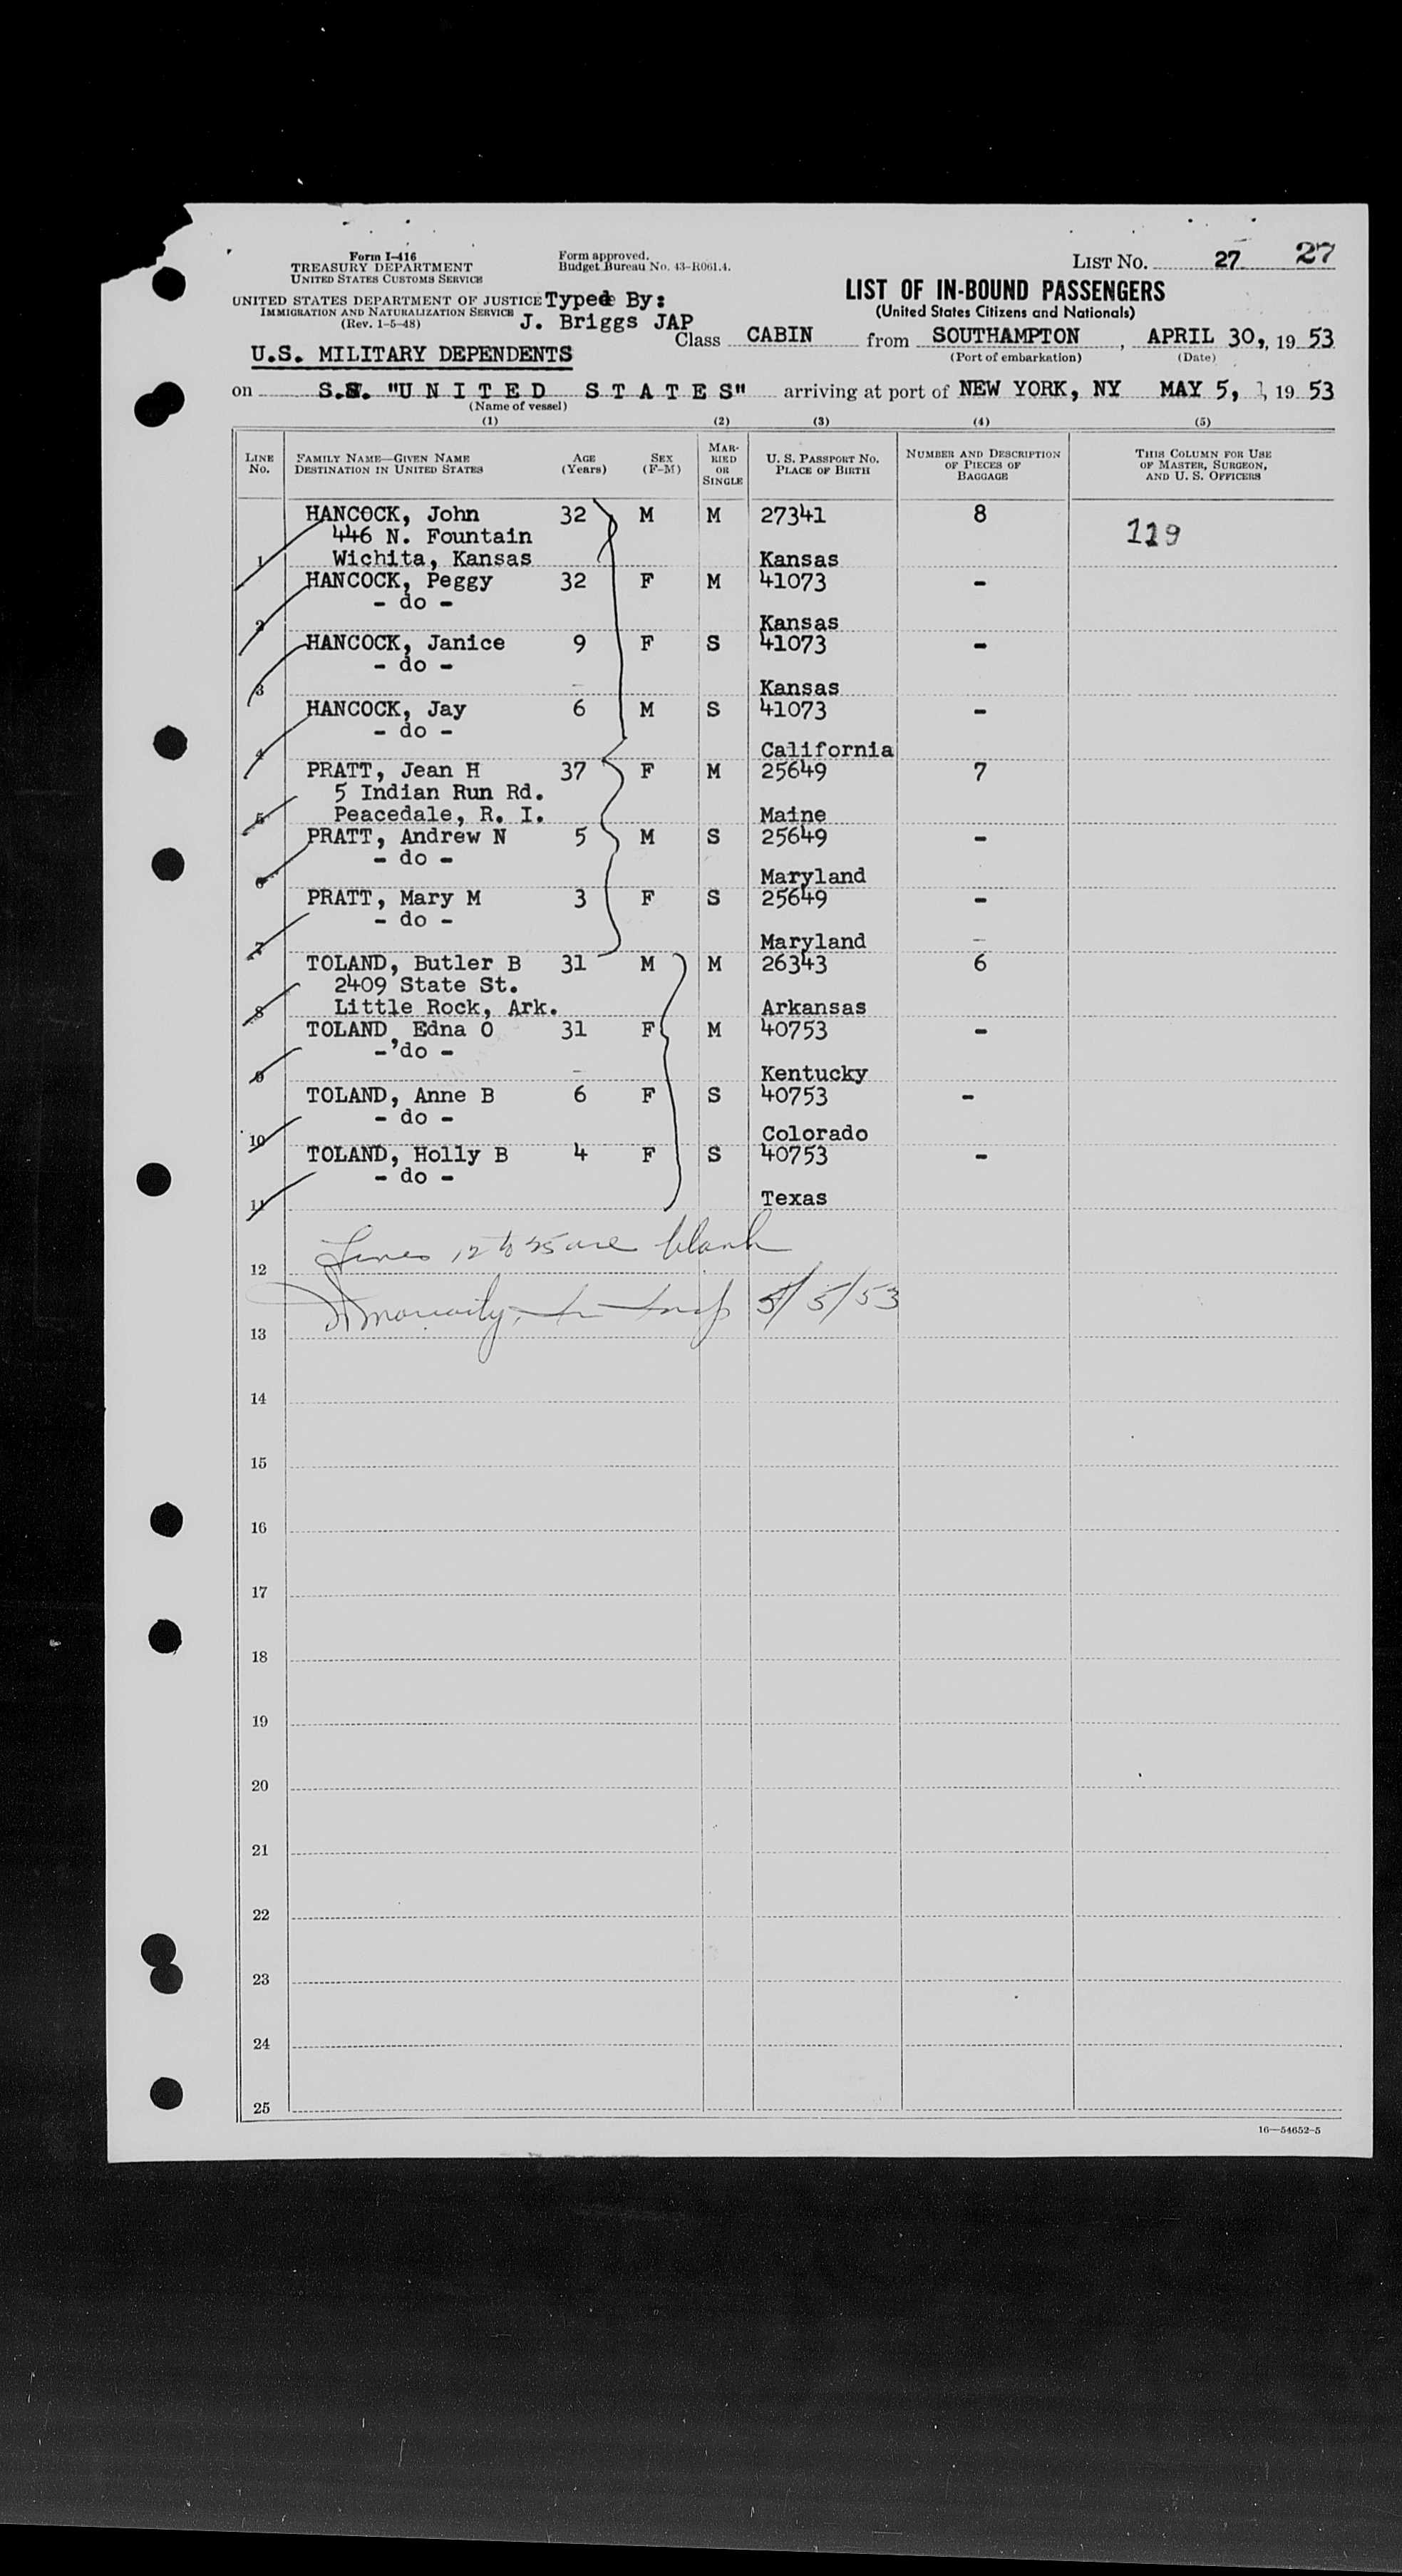 Form I-416
TREASURY DEPARTMENT
UNITED STATES CUSTOMS SERVICE
Form approved.
Budget Bureau No. 43-R061.4.
LIST NO. 27 27
UNITED STATES DEPARTMENT OF JUSTICE
IMMIGRATION AND NATURALIZATION SERVICE
(Rev. 1-5-48)
Typed By:
J. Briggs JAP
LIST OF IN-BOUND PASSENGERS
(United States Citizens and Nationals)
U.S. MILITARY DEPENDENTS
Class CABIN from SOUTHAMPTON, APRIL 30, 19 53
(Port of embarkation) (Date)
on S.S. "U N I T E D S T A T E S" arriving at port of NEW YORK, NY MAY 5, 19 53
(Name of vessel)
(1) (2) (3) (4) (5)
LINE NO. FAMILY NAME—GIVEN NAME DESTINATION IN UNITED STATES AGE (Years) SEX (F-M) MARRIED OR SINGLE U. S. PASSPORT NO. PLACE OF BIRTH NUMBER AND DESCRIPTION OF PIECES OF BAGGAGE THIS COLUMN FOR USE OF MASTER, SURGEON, AND U. S. OFFICERS
HANCOCK, John 32 M M 27341 8 119
446 N. Fountain
1 Wichita, Kansas Kansas
HANCOCK, Peggy 32 F M 41073 -
- do -
2 Kansas
HANCOCK, Janice 9 F S 41073 -
- do -
3 Kansas
HANCOCK, Jay 6 M S 41073 -
- do -
4 California
PRATT, Jean H 37 F M 25649 7
5 Indian Run Rd.
5 Peacedale, R. I. Maine
PRATT, Andrew N 5 M S 25649 -
- do -
6 Maryland
PRATT, Mary M 3 F S 25649 -
- do -
7 Maryland
TOLAND, Butler B 31 M M 26343 6
2409 State St.
8 Little Rock, Ark. Arkansas
TOLAND, Edna O 31 F M 40753 -
- do -
9 Kentucky
TOLAND, Anne B 6 F S 40753 -
- do -
10 Colorado
TOLAND, Holly B 4 F S 40753 -
- do -
11 Texas
Lines 12 to 25 are blank
12
5/5/53
13
14
15
16
17
18
19
20
21
22
23
24
25
16—54652-5